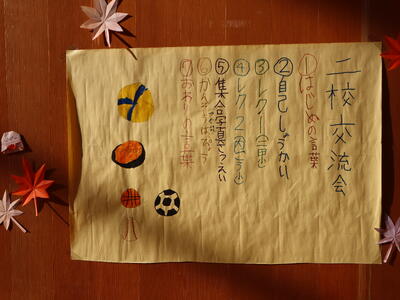 二校交流会
①はじめの言葉
②自己しょうかい
③レク1
④レク2
⑤集合写真さつえい
⑥かんそうはっぴょう
⑦おわりの言葉